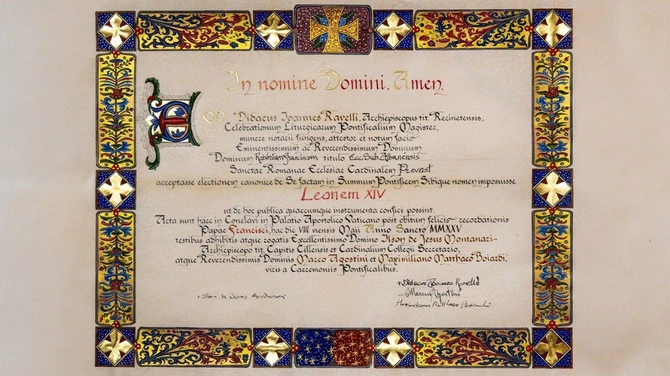 In nomine Domini. Amen.
EGO Didacus Joannes Ravelli, Archiepiscopus tit. Recinetensis,
Celebrationum Liturgicarum Pontificalium Magister,
munere notarii fungens, attestor et notum facio
Eminentissimum ac Reverendissimum Dominum
Dominum titulo Ecc. Sub. Albanensis
Sanctae Romanae Ecclesiae Cardinalem Prevost
acceptasse electionem canonice de Se factam in Summum Pontificem Sibique nomen imposuisse
Leonem XIV
ut de hoc publica quaecumque instrumenta confici possint.
Acta sunt haec in Conclavi in Palatio Apostolico Vaticano post obitum felicis recordationis
Papae Francisci, hac die VIII mensis Maii Anno Sancto MMXXV
testibus adhibitis atque rogatis Excellentissimo Domino Ilson de Jesus Montanari
Archiepiscopo tit. Capitis Cillensis et Cardinalium Collegii Secretario,
atque Reverendissimis Dominis Marco Agostini et Maximiliano Matthaeo Boiardi,
viris a Caeremoniis Pontificalibus.
Didacus Joannes Ravelli